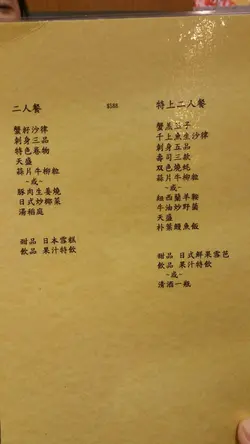 二人餐
$588
蟹籽沙律
刺身三品
特色卷物
天盛
蒜片牛柳粒
-或-
豚肉生姜燒
日式炒椰菜
湯稻庭
甜品 日本雪糕
飲品 果汁特飲
特上二人餐
蟹蒸玉子
千上魚生沙律
刺身五品
壽司三款
双色燒蚝
蒜片牛柳粒
-或-
紐西蘭羊鞍
牛油炒野菌
天盛
朴葉鰻魚飯
甜品 日式鮮果雪芭
飲品 果汁特飲
-或-
清酒一瓶